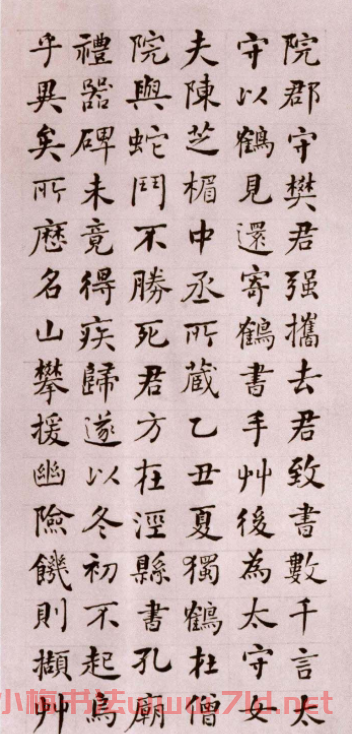 院郡守樊君强攜去君致書數千言太
守以鶴見還寄鶴書手艸後為太守女
夫陳芝楣中丞所蔵乙丑夏獨鶴在僧
院與蛇鬥不勝死君方在涇縣書孔廟
禮器碑未竟得疾歸遂以冬初不起烏
乎異矣所歷名山攀援幽險饑則擷艸
小梅书法